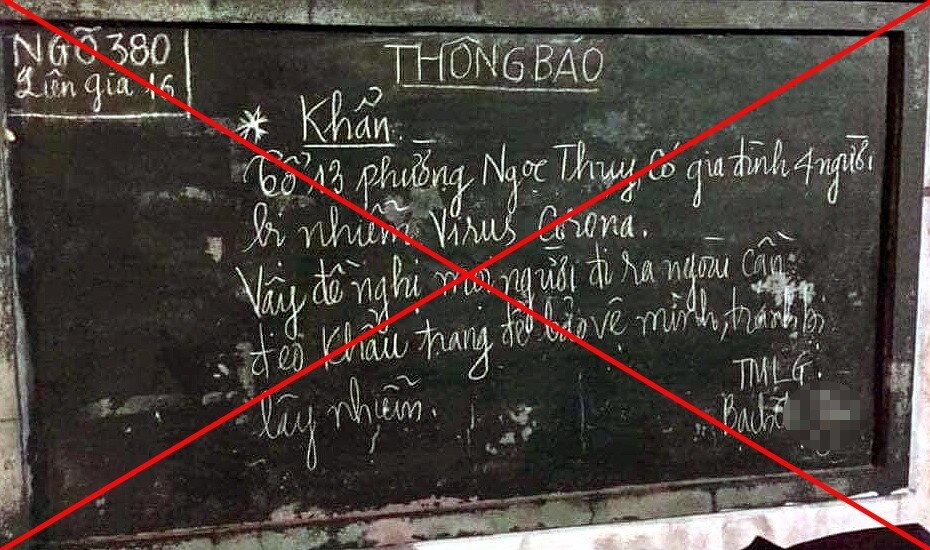 NGÕ 380
Liên gia 16
THÔNG BÁO
* Khẩn.
Tổ 13 phường Ngọc Thụy, có gia đình 4 người
bị nhiễm Virus Corona.
Vậy đề nghị mọi người đi ra ngoài cần
đeo khẩu trang để bảo vệ mình, tránh bị
lây nhiễm.
TMLG.